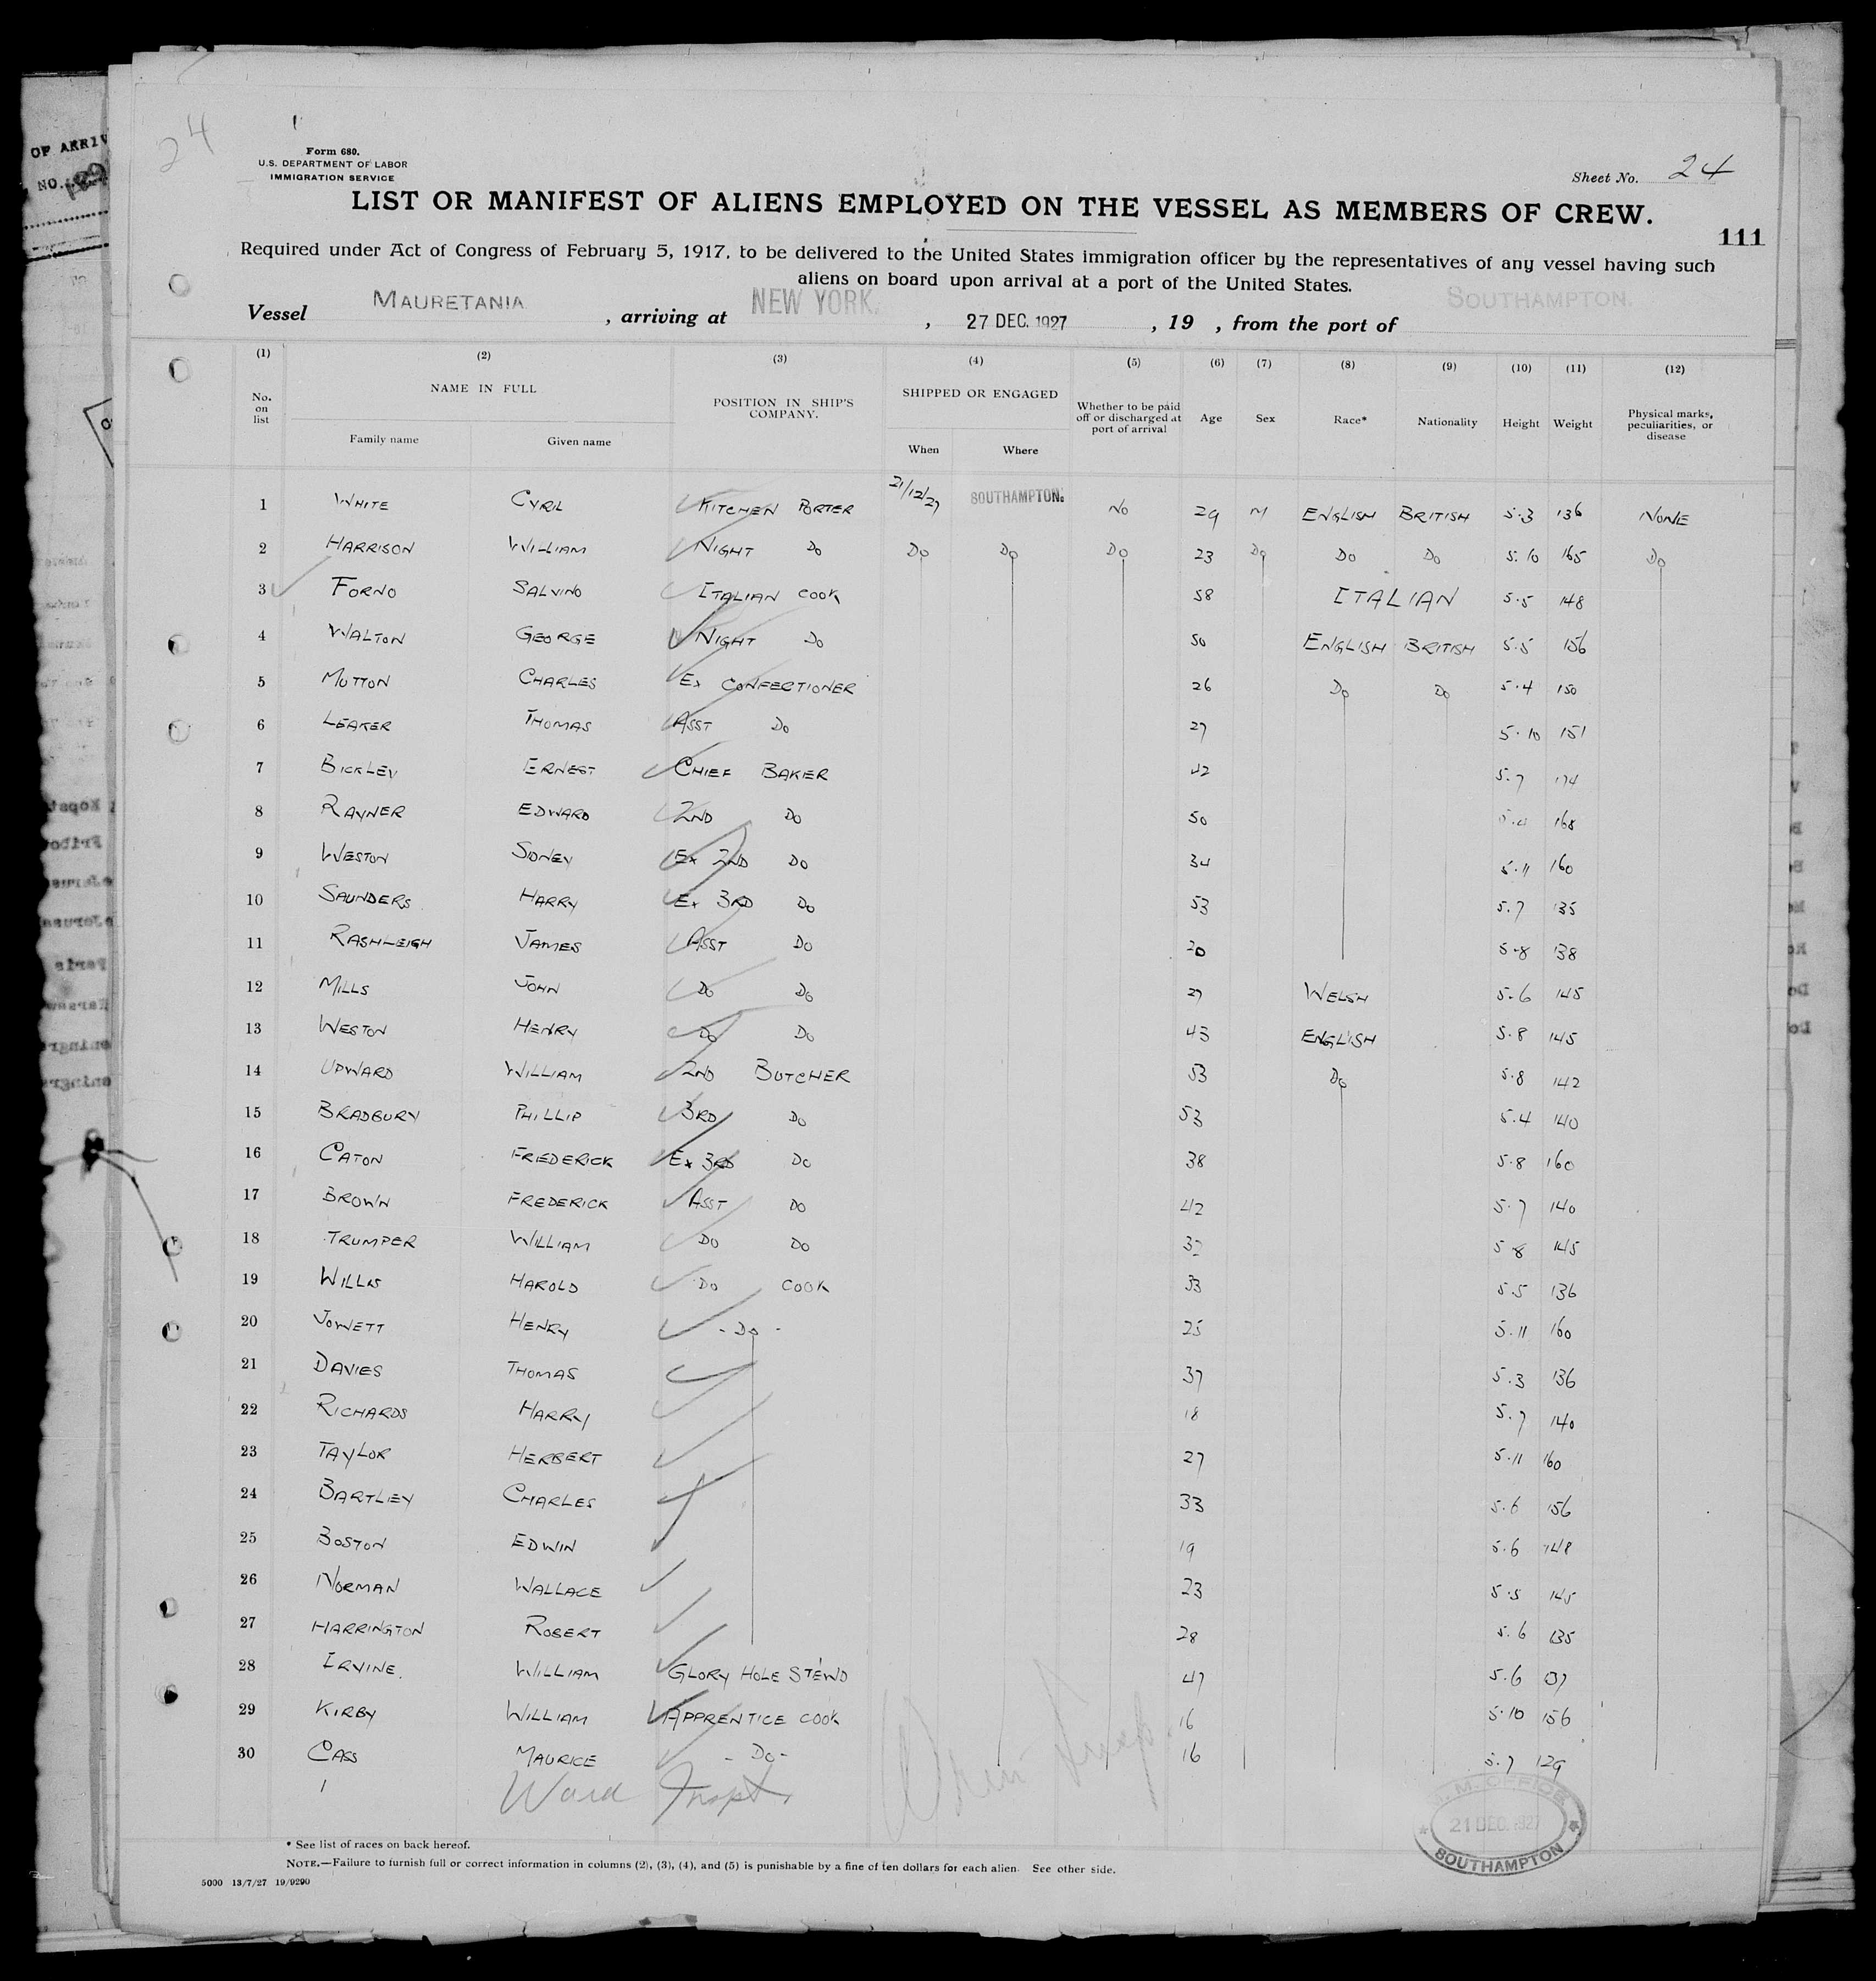 24
OF ARRIV
NO.
Form 680.
U.S. DEPARTMENT OF LABOR
IMMIGRATION SERVICE
Sheet No. 24
LIST OR MANIFEST OF ALIENS EMPLOYED ON THE VESSEL AS MEMBERS OF CREW.
111
Required under Act of Congress of February 5, 1917, to be delivered to the United States immigration officer by the representatives of any vessel having such
aliens on board upon arrival at a port of the United States.
Vessel MAURETANIA, arriving at NEW YORK, 27 DEC. 1927, 19 , from the port of SOUTHAMPTON.
(1) (2) (3) (4) (5) (6) (7) (8) (9) (10) (11) (12)
No. on list NAME IN FULL POSITION IN SHIP'S COMPANY. SHIPPED OR ENGAGED Whether to be paid off or discharged at port of arrival Age Sex Race* Nationality Height Weight Physical marks, peculiarities, or disease
Family name Given name When Where
1 WHITE CYRIL KITCHEN PORTER 21/12/27 SOUTHAMPTON. NO 29 M ENGLISH BRITISH 5.3 136 NONE
2 HARRISON WILLIAM NIGHT DO DO DO DO 23 DO DO DO 5.10 165 DO
3 FORNO SALVINO ITALIAN COOK 58 ITALIAN 5.5 148
4 WALTON GEORGE NIGHT DO 50 ENGLISH BRITISH 5.5 156
5 MUTTON CHARLES EX CONFECTIONER 26 DO DO 5.4 150
6 LEAKER THOMAS ASST DO 27 5.10 151
7 BICKLEY ERNEST CHIEF BAKER 42 5.7 174
8 RAYNER EDWARD 2ND DO 50 168
9 WESTON SIDNEY EX 2ND DO 34 5.11 160
10 SAUNDERS HARRY EX 3RD DO 53 5.7 135
11 RASHLEIGH JAMES ASST DO 20 5.8 138
12 MILLS JOHN DO DO 27 WELSH 5.6 145
13 WESTON HENRY DO DO 43 ENGLISH 5.8 145
14 UPWARD WILLIAM 2ND BUTCHER 53 DO 5.8 142
15 BRADBURY PHILLIP 3RD DO 53 5.4 140
16 CATON FRIEDERICK EX 3RD DO 38 5.8 160
17 BROWN FREDERICK ASST DO 42 5.7 140
18 TRUMPER WILLIAM DO DO 5 8 145
19 WILLIS HAROLD DO COOK 33 5.5 136
20 JOWETT HENRY - DO - 25 5.11 160
21 DAVIES THOMAS 37 5.3 136
22 RICHARDS HARRY 18 5.7 140
23 TAYLOR HERBERT 27 5.11 160
24 BARTLEY CHARLES 33 5.6 156
25 BOSTON EDWIN 19 5.6 148
26 NORMAN WALLACE 23 5.5 145
27 HARRINGTON ROBERT 28 5.6 135
28 IRVINE. WILLIAM GLORY HOLE STEWD 47 5.6 137
29 KIRBY WILLIAM APPRENTICE COOK 16 5.10 156
30 CASS MAURICE - DO - 16 5.7 129
Ward Inspt.
M. OFFICE
21 DEC. 1927
SOUTHAMPTON
* See list of races on back hereof.
NOTE.—Failure to furnish full or correct information in columns (2), (3), (4), and (5) is punishable by a fine of ten dollars for each alien. See other side.
5000 13/7/27 19/9290